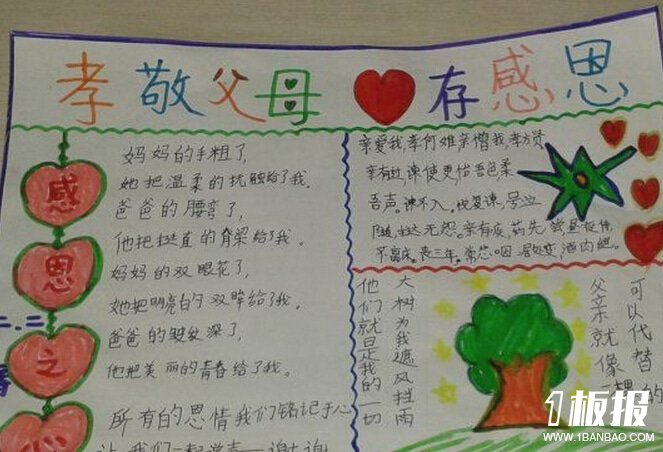 孝敬父母 存感恩
感
恩
之
心
妈妈的手粗了,
她把温柔的抚触给了我。
爸爸的腰弯了,
他把挺直的脊梁给了我。
妈妈的双眼花了,
她把明亮的双眸给了我。
爸爸的皱纹深了,
他把美丽的青春给了我。
所有的恩情我们铭记于心
让我们一起说声 谢谢
亲爱我,孝何难,亲憎我,孝方贤。
亲有过,谏使更,怡吾色,柔
吾声。谏不入。悦复谏,号泣
随,挞无怨。亲有疾,药先尝,昼夜侍,
不离床。丧三年。常悲咽,居处变,酒肉绝。
可以代替
父亲就像
的
大树为我遮风挡雨
他们就是我的一切
1板报
WWW.1BANBAO.COM